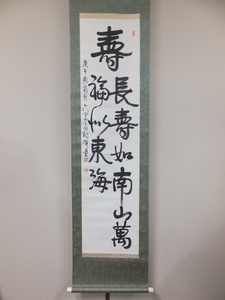 壽
長壽如南山萬
福似東海
庚午